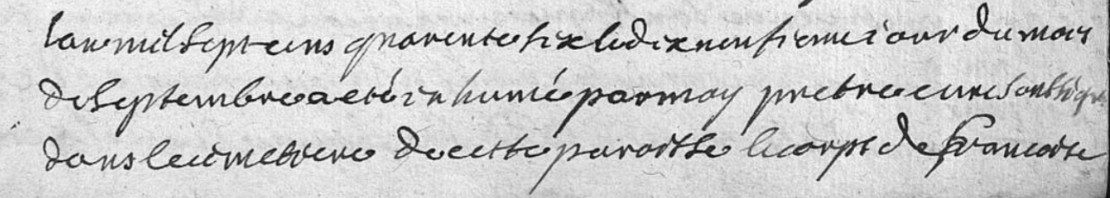 lan mil sept cens quarente six le dix neufieme iour du mois
de septembre a eté in humé par moy pretre curé soussigné
dans le cimetiere de cette paroisse le corps de francoise